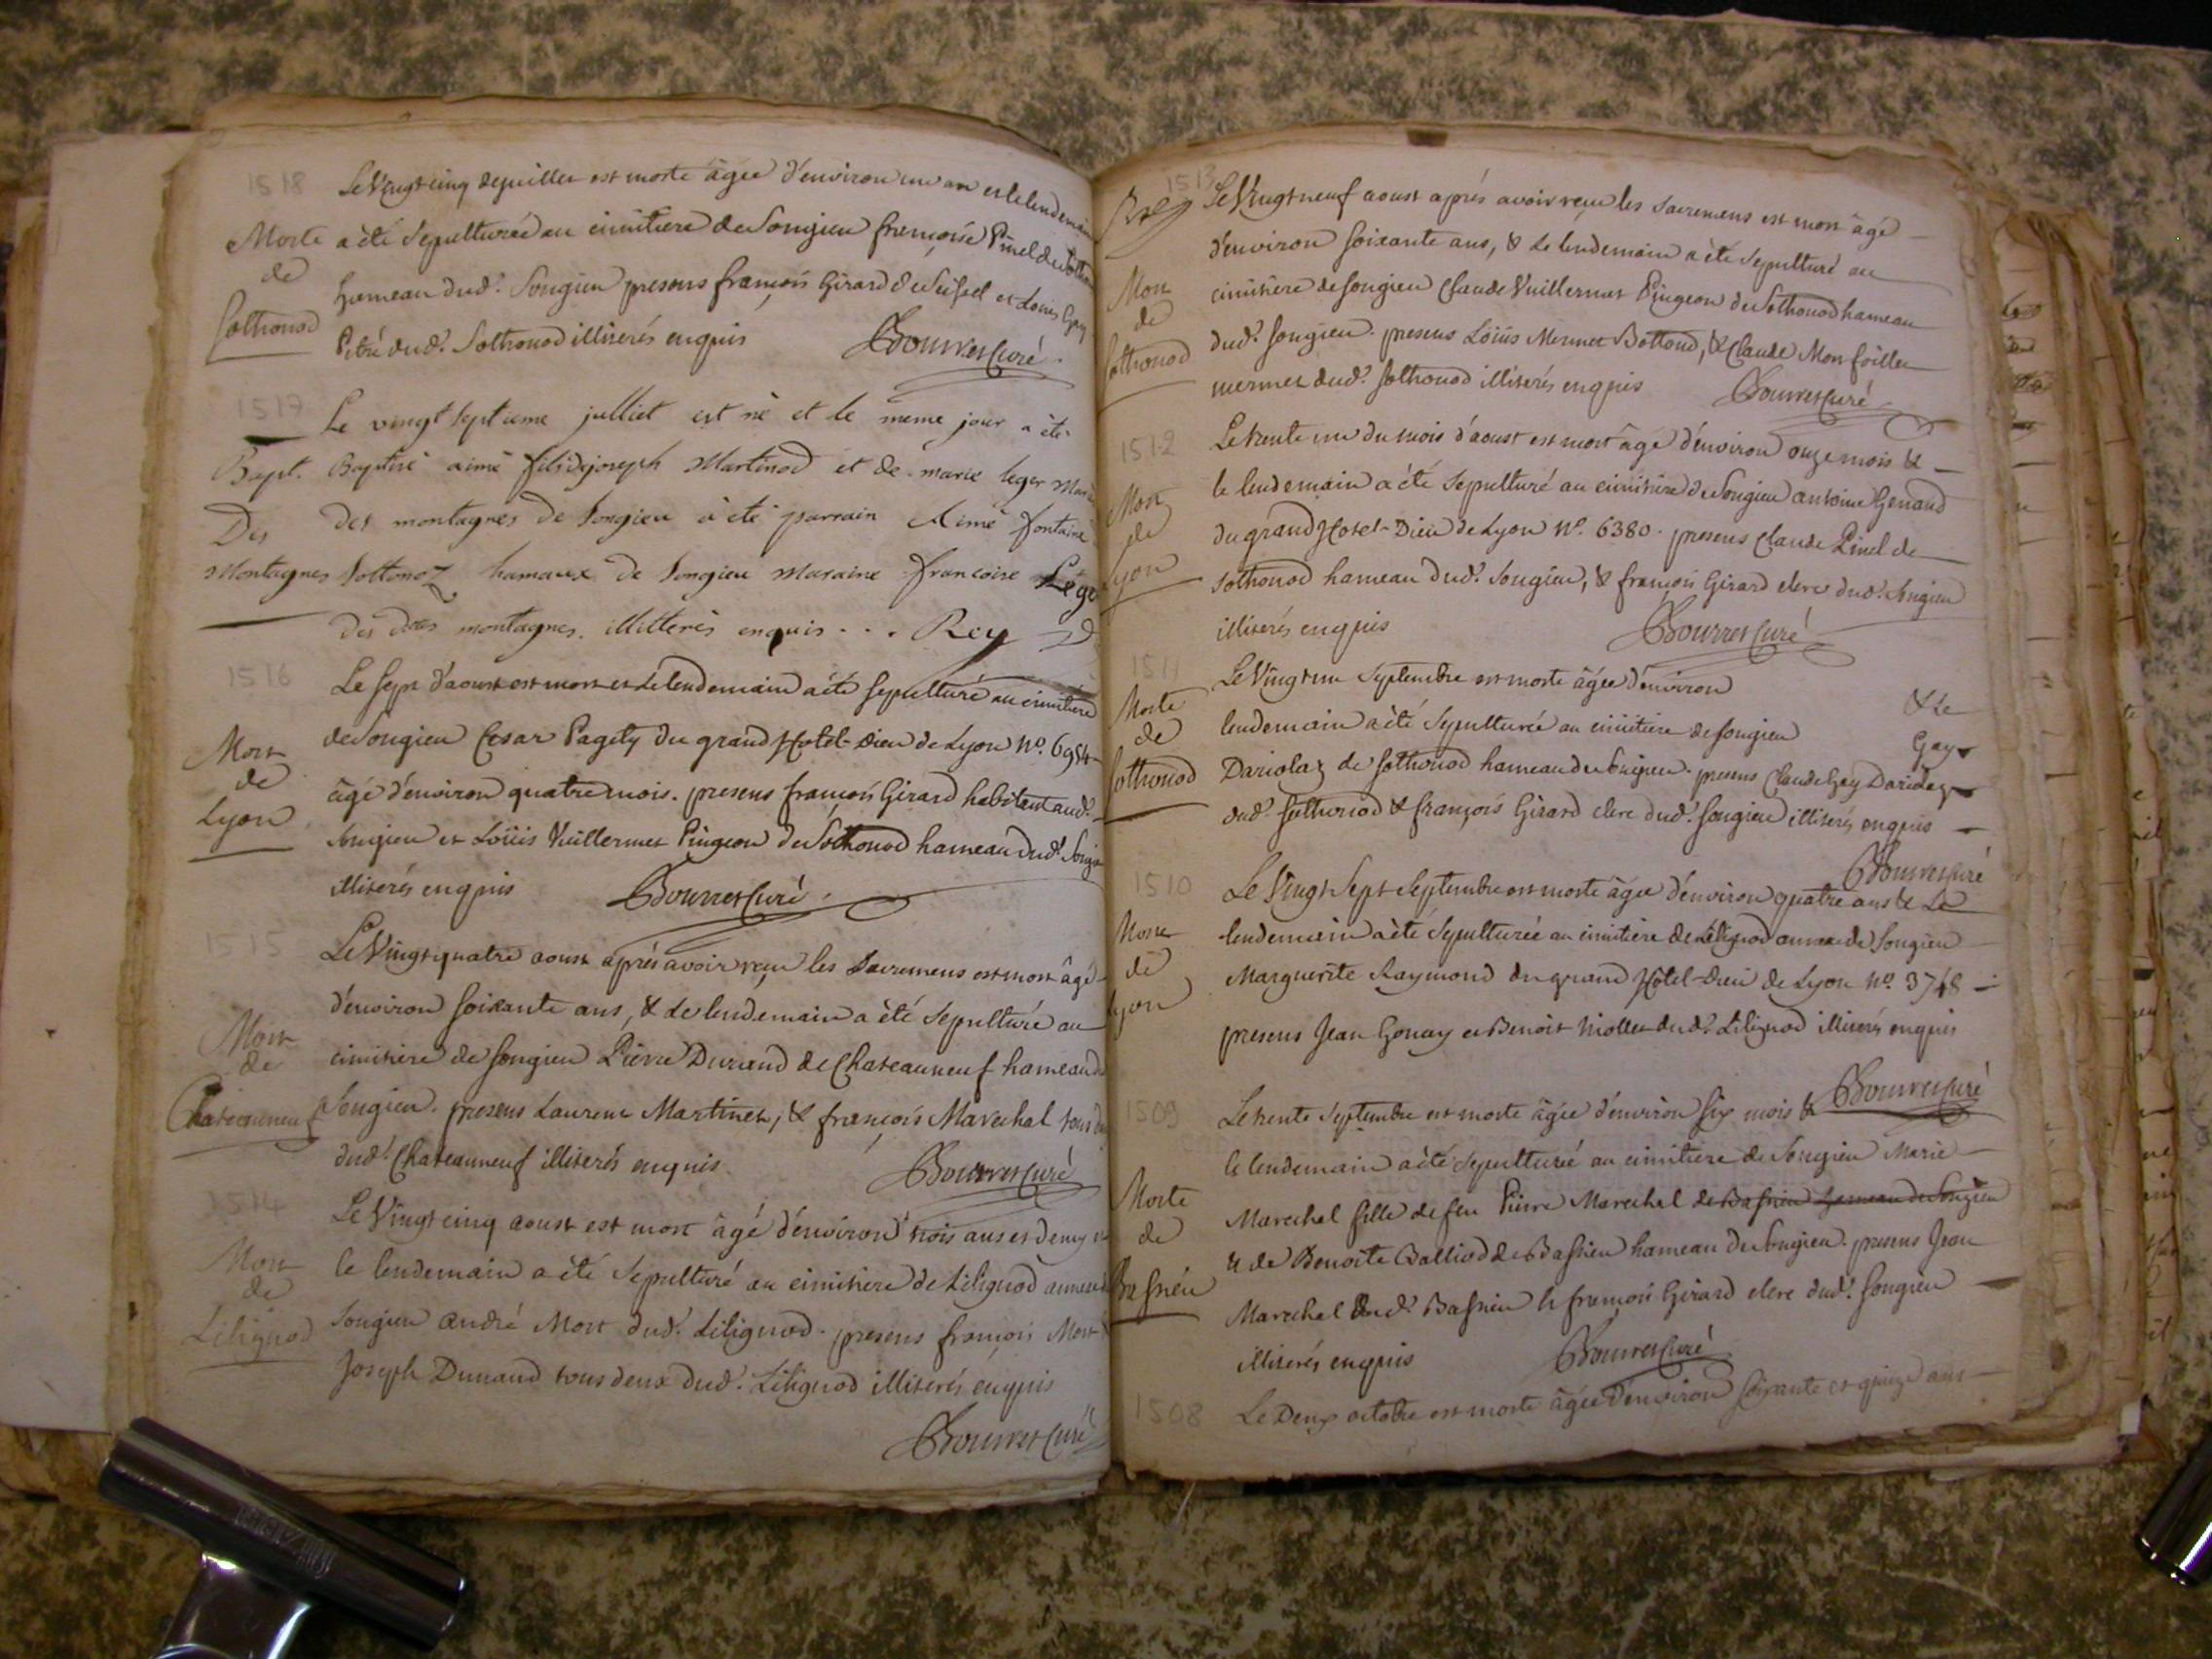 1518
Le Vingt cinq de juillet est morte âgée d'environ un an et le lendemain
Morte
de
Sothonod
a été Sepulturée au cimitiere de Songieu françoise Pinel de Sothonod
hameau dud.t Songieu presens françois Girard de Seissel et Louis Gay
Pitré dud.t Sothonod illiterés enquis Bourret Curé
1517
Le vingt septieme julliet est né et le meme jour a été
Bapt.
Des
Montagnes
Baptisé aimé fils de joseph Martinod et de marie leger
des montagnes de Songieu a été parrain Aimé fontaine
Sottonoz hamaux de Songieu maraine francoise Leger
des dtes montagnes. illitterés enquis . . . Rey
1516
Le Sept d'aoust est mort et le lendemain a été Sepulturé au cimitiere
Mort
de
Lyon
de Songieu Cesar Pagety du grand Hotel-Dieu de Lyon N.o 6954
âgé d'environ quatre mois. presens françois Girard habitant aud.t
Songieu et Loüis Vuillermet Pingeon de Sothonod hameau dud.t Songieu
illiterés enquis Bourret Curé
1515
Le Vingt quatre aoust aprés avoir reçu les Sacremens est mort âgé
d'environ soixante ans, & le lendemain a été Sepulturé au
Mort
de
Chateauneuf
cimitiere de Songieu Pierre Durand de Chateauneuf hameau de
Songieu. presens Laurent Martinet, & françois Marechal tous deux
dud.t Chateauneuf illiterés enquis. Bourret Curé
1514
Le Vingt cinq aoust est mort âgé d'environ trois ans et demy et
Mort
de
Lilignod
le lendemain a été Sepulturé au cimitiere de Lilignod annexe de
Songieu andré Mort dud.t Lilignod. presens françois Mort &
Joseph Dunand tous deux dud.t Lilignod illiterés enquis
Bourret Curé
1513
Le Vingt neuf aoust aprés avoir reçu les Sacremens est mort âgé
d'environ soixante ans, & le lendemain a été Sepulturé au
Mort
de
Sothonod
cimitiere de Songieu Claude Vuillermet Pingeon de Sothonod hameau
dud.t Songieu. presens Loüis Mermet Bottond, & Claude Monfoiller
mermet dud.t Sothonod illiterés enquis Bourret Curé
1512
Le trente un du mois d'aoust est mort âgé d'environ onze mois &
Mort
de
Lyon
le lendemain a été Sepulturé au cimitiere de Songieu antoine Genaud
du grand Hotel-Dieu de Lyon N.o 6380. presens Claude Pinel de
Sothonod hameau dud.t Songieu, & françois Girard clerc dud.t Songieu
illiterés enquis Bourret Curé
1511
Le Vingt un Septembre est morte âgée d'environ & le
Morte
de
Sothonod
lendemain a été Sepulturée au cimitiere de Songieu Gay
Dariolaz de Sothonod hameau de Songieu. presens Claude Gay Dariolaz
dud.t Sothonod & françois Girard clerc dud.t Songieu illiterés enquis
Bourret Curé
1510
Le Vingt Sept Septembre est morte âgée d'environ quatre ans & le
Morte
de
Lyon
lendemain a été Sepulturée au cimitiere de Lilignod annexe de Songieu
Marguerite Raymond du grand Hôtel-Dieu de Lyon N.o 3748
presens Jean Gonay et Benoit Miollet dud.t Lilignod illiterés enquis
Bourret Curé
1509
Le trente Septembre est morte âgée d'environ six mois &
Morte
de
Bassieu
le lendemain a été Sepulturée au cimitiere de Songieu Marie
Marechal fille de feu Pierre Marechal de Bassieu hameau de Songieu
& de Benoite Balliod de Bassieu hameau de Songieu. presens Jean
Marechal dud.t Bassieu & françois Girard clerc dud.t Songieu
illiterés enquis Bourret Curé
1508
Le Deux octobre est morte âgée d'environ soixante et quinze ans